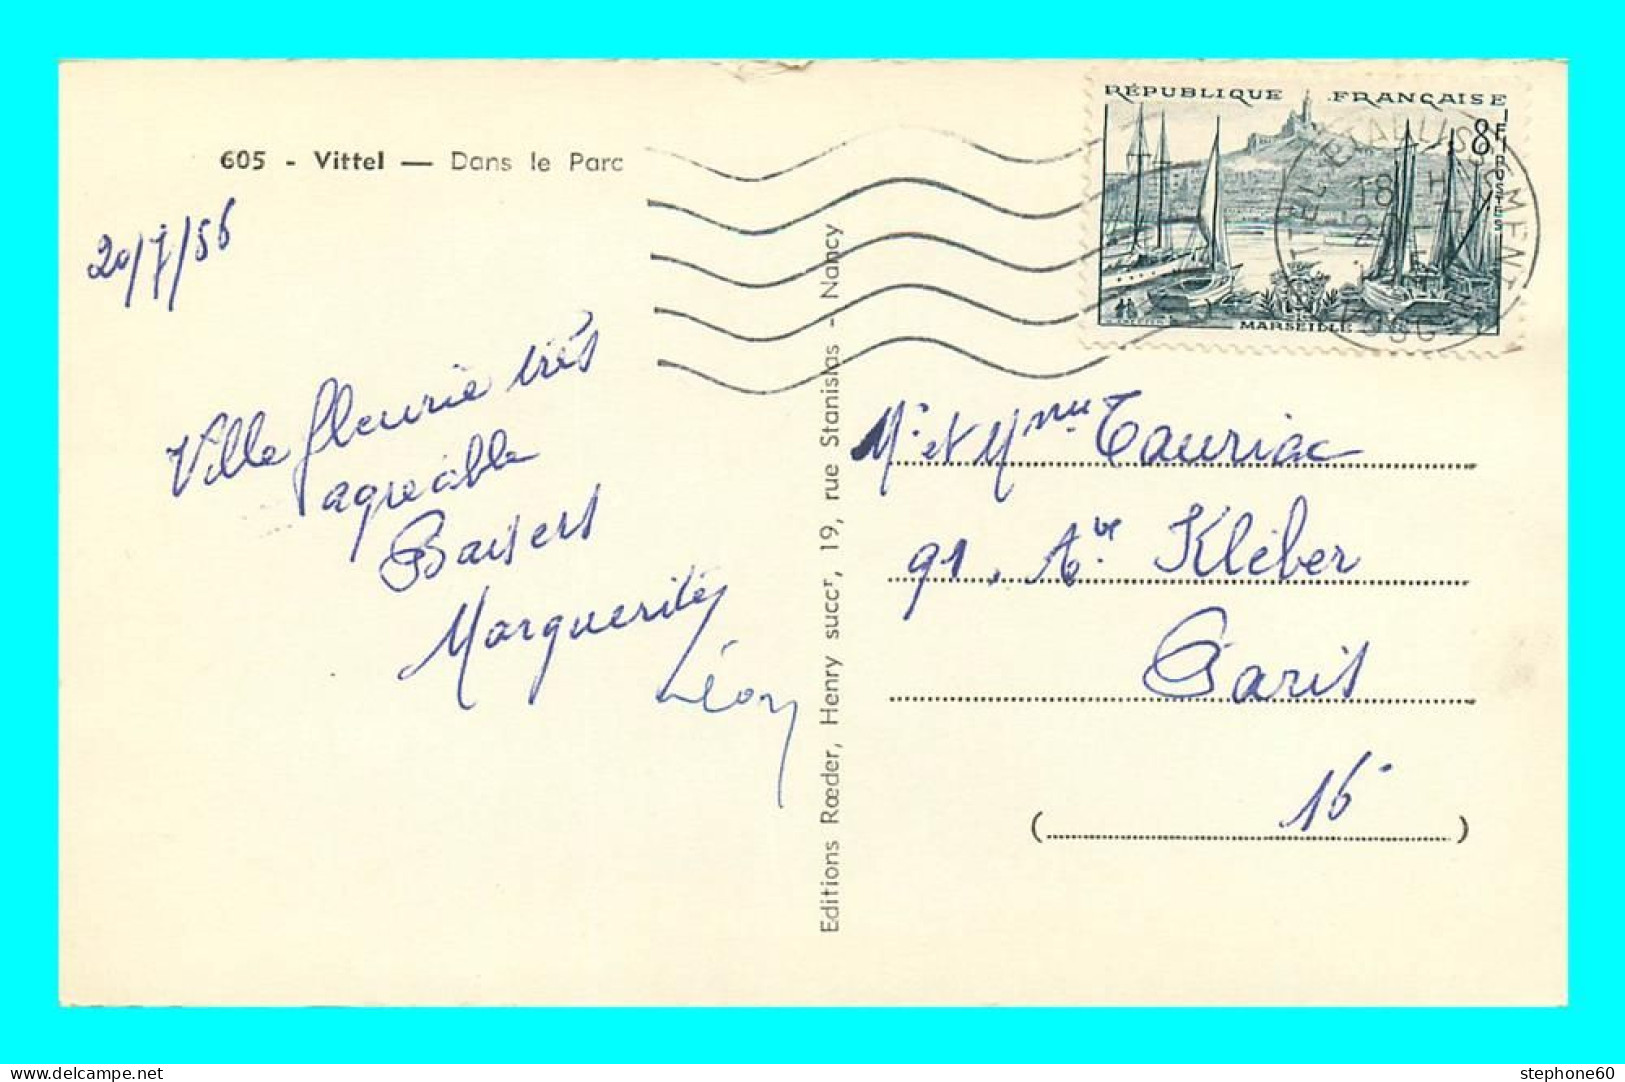 605 - Vittel — Dans le Parc
20/7/56
Ville fleurie très
agréable
Baisers
Marguerite
Léon
Editions Rœder, Henry succʳ, 19, rue Stanislas - Nancy
RÉPUBLIQUE FRANÇAISE
8F
POSTES
MARSEILLE
VITTEL ETABLISSEMENT
18 H
20 - 7
VOSGES
Mʳ et Mme Tauriac
91, Aᵛᵉ Kléber
Paris
(16)
stephone60